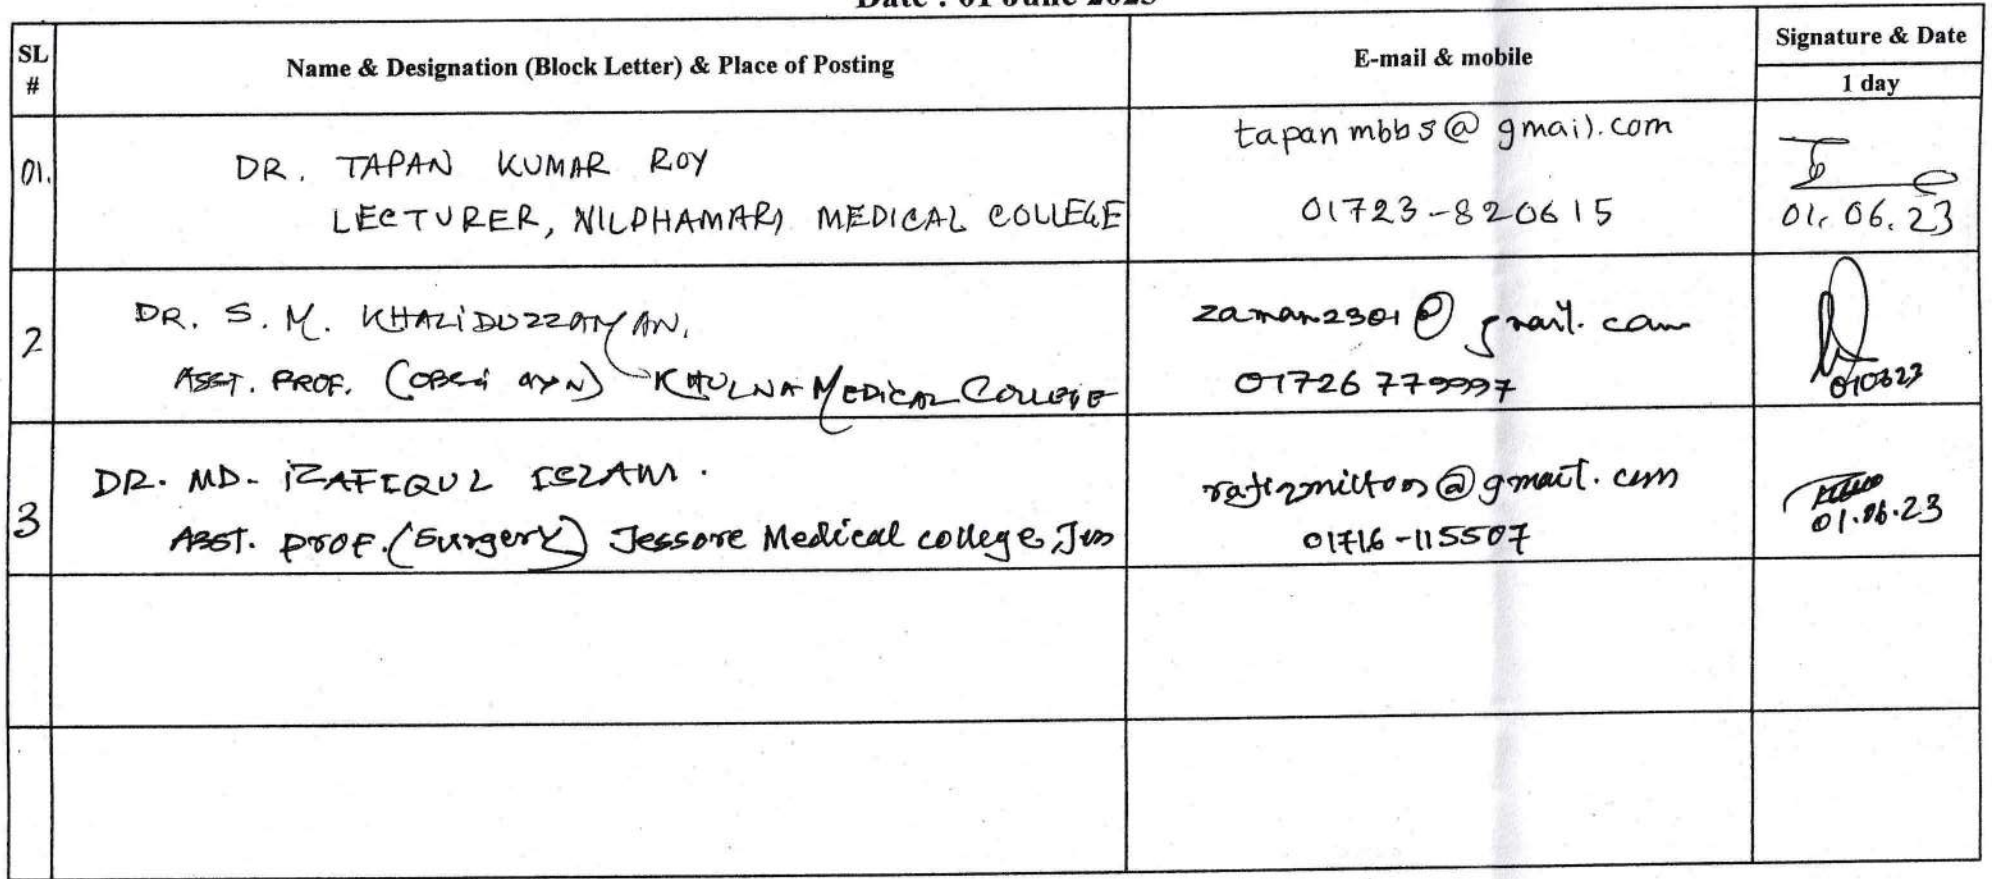 Date : 01 June 2023
SL
#
Name & Designation (Block Letter) & Place of Posting
E-mail & mobile
Signature & Date
1 day
01.
DR. TAPAN KUMAR ROY
LECTURER, NILPHAMARI MEDICAL COLLEGE
tapanmbbs@gmail.com
01723-820615
01.06.23
2
DR. S. M. KHALIDUZZAMAN.
ASST. PROF. KHULNA MEDICAL COLLEGE
zaman2301@gmail.com
01726 779997
010623
3
DR. MD. RAFIQUL ISLAM.
ASST. PROF. (Surgery) Jessore Medical college,
@gmail.com
01716-115507
01.06.23